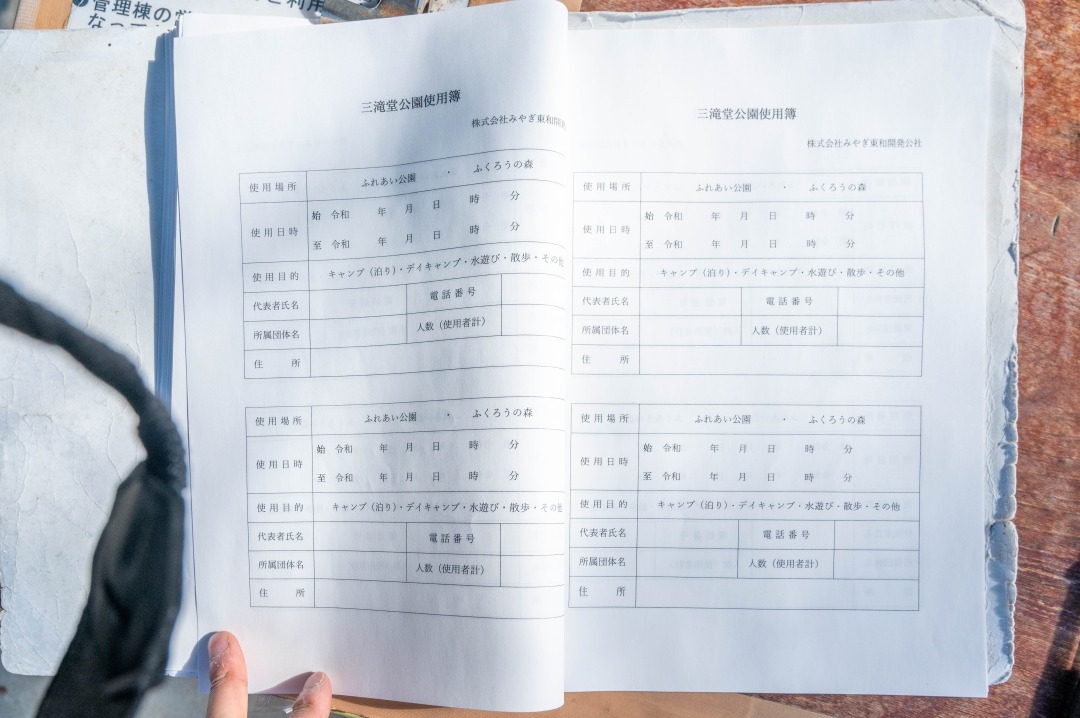 管理棟の
ご利用
なって
三滝堂公園使用簿
株式会社みやぎ東和開
使用場所 ふれあい公園 ・ ふくろうの森
使用日時 始 令和 年 月 日 時 分
至 令和 年 月 日 時 分
使用目的 キャンプ（泊り）・デイキャンプ・水遊び・散歩・その他
代表者氏名 電話番号
所属団体名 人数（使用者計）
住 所
使用場所 ふれあい公園 ・ ふくろうの森
使用日時 始 令和 年 月 日 時 分
至 令和 年 月 日 時 分
使用目的 キャンプ（泊り）・デイキャンプ・水遊び・散歩・その他
代表者氏名 電話番号
所属団体名 人数（使用者計）
住 所
三滝堂公園使用簿
株式会社みやぎ東和開発公社
使用場所 ふれあい公園 ・ ふくろうの森
使用日時 始 令和 年 月 日 時 分
至 令和 年 月 日 時 分
使用目的 キャンプ（泊り）・デイキャンプ・水遊び・散歩・その他
代表者氏名 電話番号
所属団体名 人数（使用者計）
住 所
使用場所 ふれあい公園 ・ ふくろうの森
使用日時 始 令和 年 月 日 時 分
至 令和 年 月 日 時 分
使用目的 キャンプ（泊り）・デイキャンプ・水遊び・散歩・その他
代表者氏名 電話番号
所属団体名 人数（使用者計）
住 所